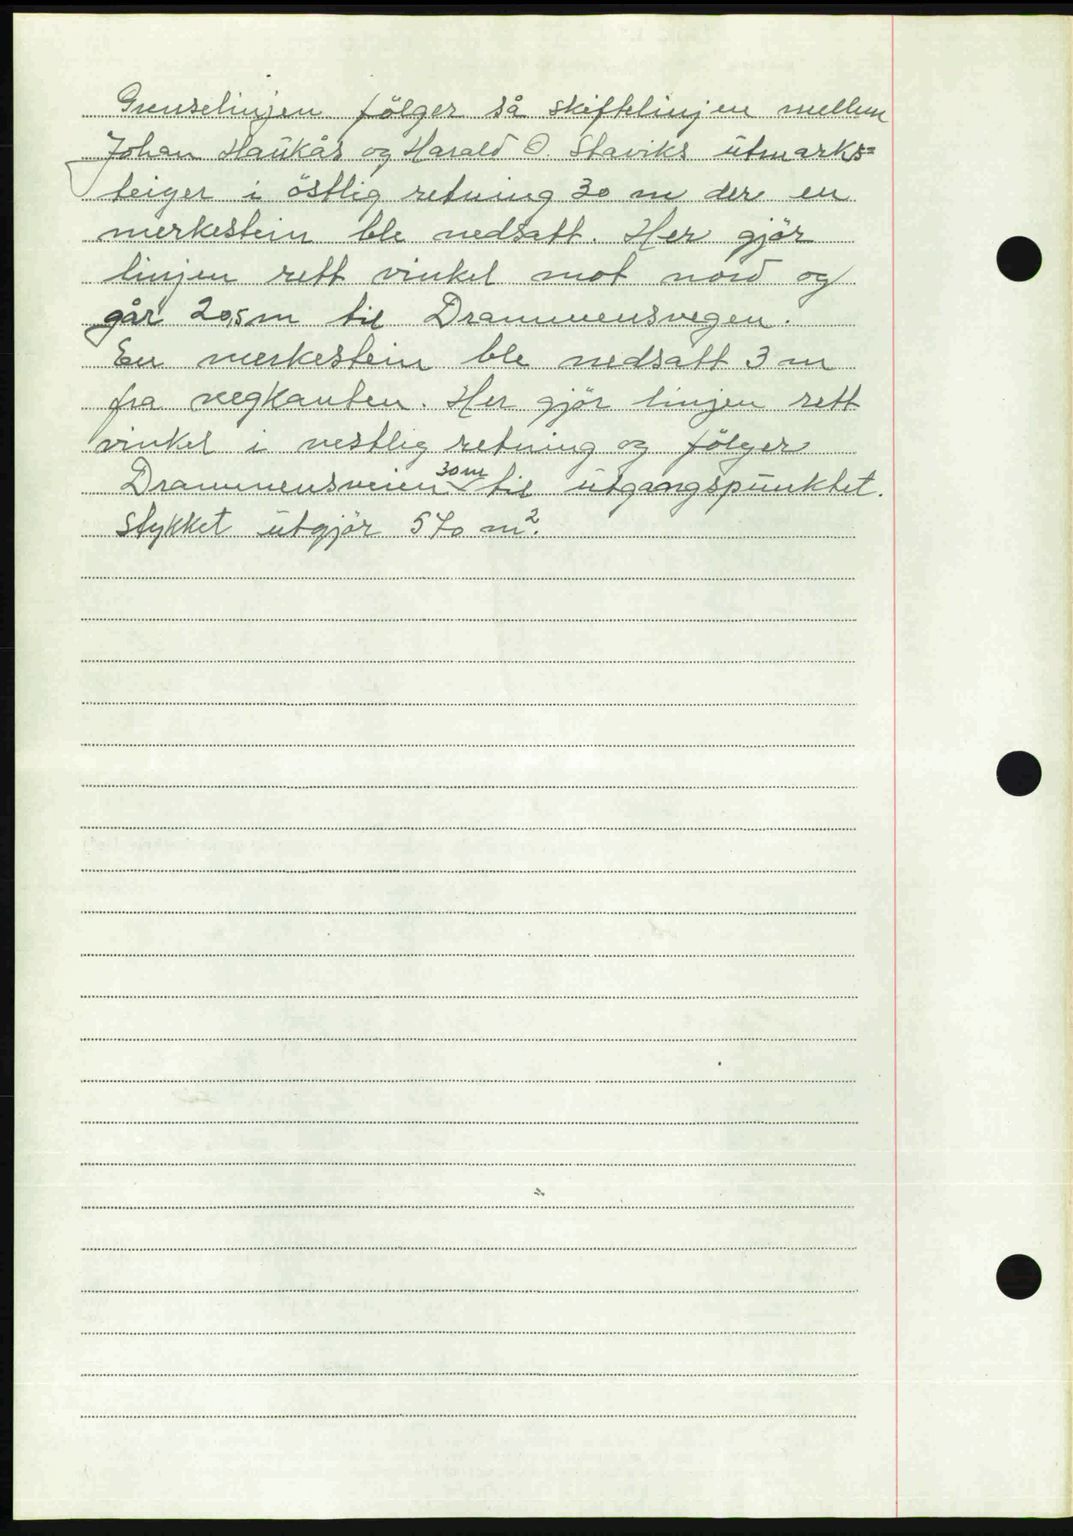 Grenselinjen fölger så skiftelinjen mellem
Johan Haukås og Harald O. Staviks utmarks=
teiger i östlig retning 30 m der en
merkestein ble nedsatt. Her gjör
linjen rett vinkel mot nord og
går 20,5 m til Drammensvegen.
En merkestein ble nedsatt 3 m
fra vegkanten. Her gjör linjen rett
vinkel i vestlig retning og fölger
Drammensveien 30 m til utgangspunktet.
Stykket utgjör 570 m².